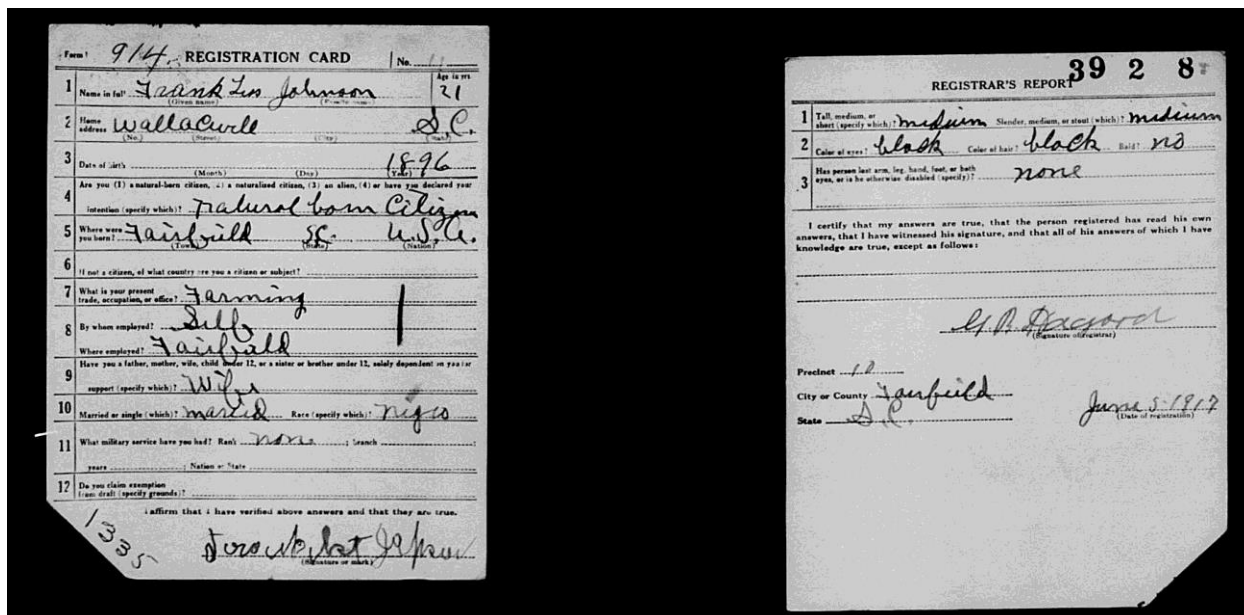 Form 1 914 REGISTRATION CARD No.
1 Name in full Frank Johnson Age in yrs. 21
(Given name) (Family name)
2 Home address S.C.
(No.) (Street) (City) (State)
3 Date of birth 1896
(Month) (Day) (Year)
4 Are you (1) a natural-born citizen, (2) a naturalized citizen, (3) an alien, (4) or have you declared your
intention (specify which)? natural born Citizen
5 Where were you born? Fairfield S.C. U.S.A.
(Town) (State) (Nation)
6 If not a citizen, of what country are you a citizen or subject?
7 What is your present trade, occupation, or office? Farming
8 By whom employed? Self
Where employed? Fairfield
9 Have you a father, mother, wife, child under 12, or a sister or brother under 12, solely dependent on you for
support (specify which)? Wife
10 Married or single (which)? married Race (specify which)? negro
11 What military service have you had? Rank none ; branch ;
years ; Nation or State
12 Do you claim exemption from draft (specify grounds)?
I affirm that I have verified above answers and that they are true.
(Signature or mark)
1335
39 2 8
REGISTRAR'S REPORT
1 Tall, medium, or short (specify which)? medium Slender, medium, or stout (which)? medium
2 Color of eyes? black Color of hair? black Bald? no
3 Has person lost arm, leg, hand, foot, or both eyes, or is he otherwise disabled (specify)? none
I certify that my answers are true, that the person registered has read his own
answers, that I have witnessed his signature, and that all of his answers of which I have
knowledge are true, except as follows:
(Signature of registrar)
Precinct 10
City or County Fairfield
State S.C. June 5 1917
(Date of registration)